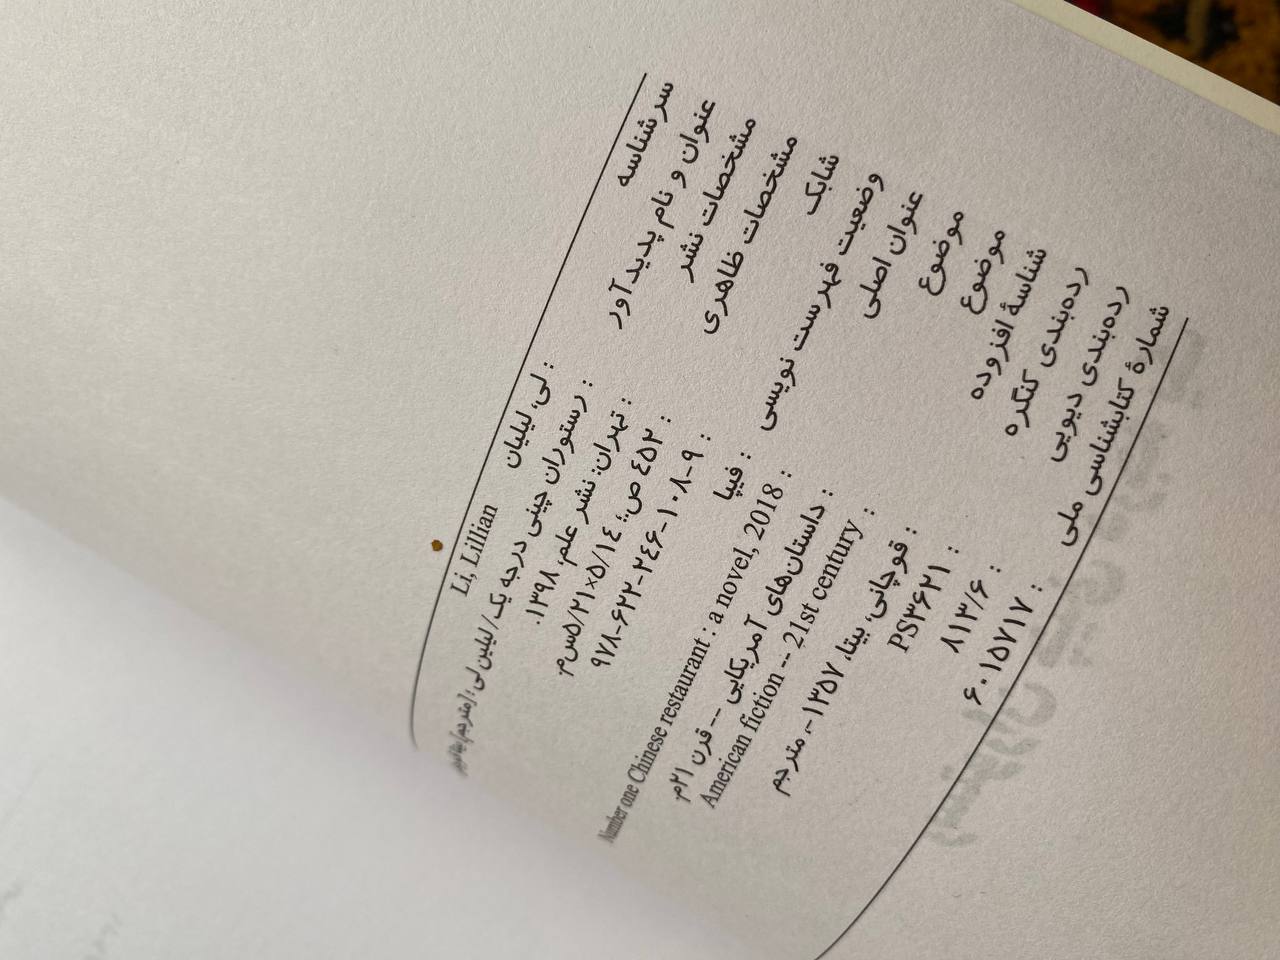 سرشناسه : لی، لیلیان Li, Lillian
عنوان و نام پدیدآور : رستوران چینی درجه یک / لیلین لی؛ [مترجم]
مشخصات نشر : تهران: نشر علم، ۱۳۹۸.
مشخصات ظاهری : ۴۵۲ ص؛ ۲۱×۵/۱۴س‌م.
شابک : ۹۷۸-۶۲۲-۲۴۶-۱۰۸-۹
وضعیت فهرست نویسی : فیپا
عنوان اصلی : Number one Chinese restaurant : a novel, 2018
موضوع : داستان‌های آمریکایی -- قرن ۲۱م.
موضوع : American fiction -- 21st century
شناسهٔ افزوده : قوچانی، بیتا، ۱۳۵۷-، مترجم
رده‌بندی کنگره : PS۳۶۲۱
رده‌بندی دیویی : ۸۱۳/۶
شمارهٔ کتابشناسی ملی : ۶۰۱۵۷۱۷